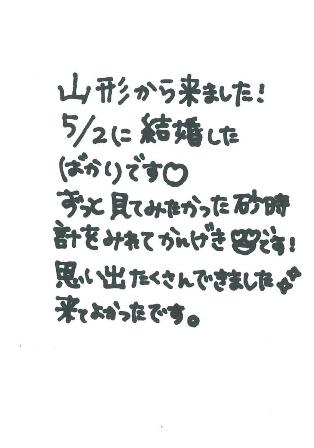 山形から来ました!
5/2に結婚した
ばかりです♡
ずっと見てみたかった砂時
計をみれてかんげきです!
思い出たくさんできました
来てよかったです。